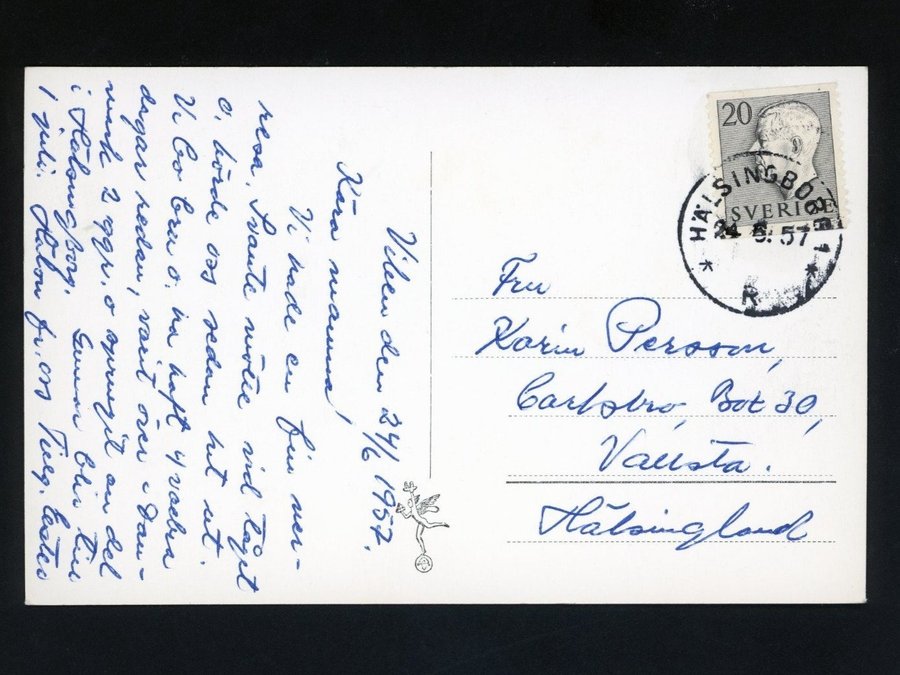 Viken den 24/6 1957.
Kära mamma!
Vi hade en fin ner-
resa, Svante mötte vid tåget
o, körde oss sedan hit ut.
Vi bo bra o, ha haft 4 vackra
dagar redan, varit över i Dan-
mark 2 ggr. o sprungit en del
i Hälsingborg. Gunnar blir kvar
1 juli. Hälsn fr. oss
20
SVERIGE
HÄLSINGBORG 1
24 6. 57
Fru
Karin Persson,
Carlsbro, Box 30,
Vallsta.
Hälsingland